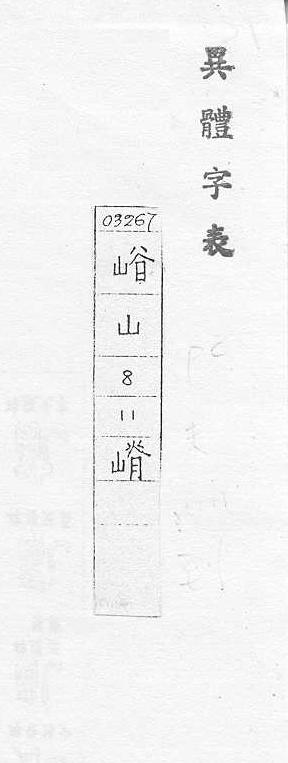 異體字表
03267
山
8
11